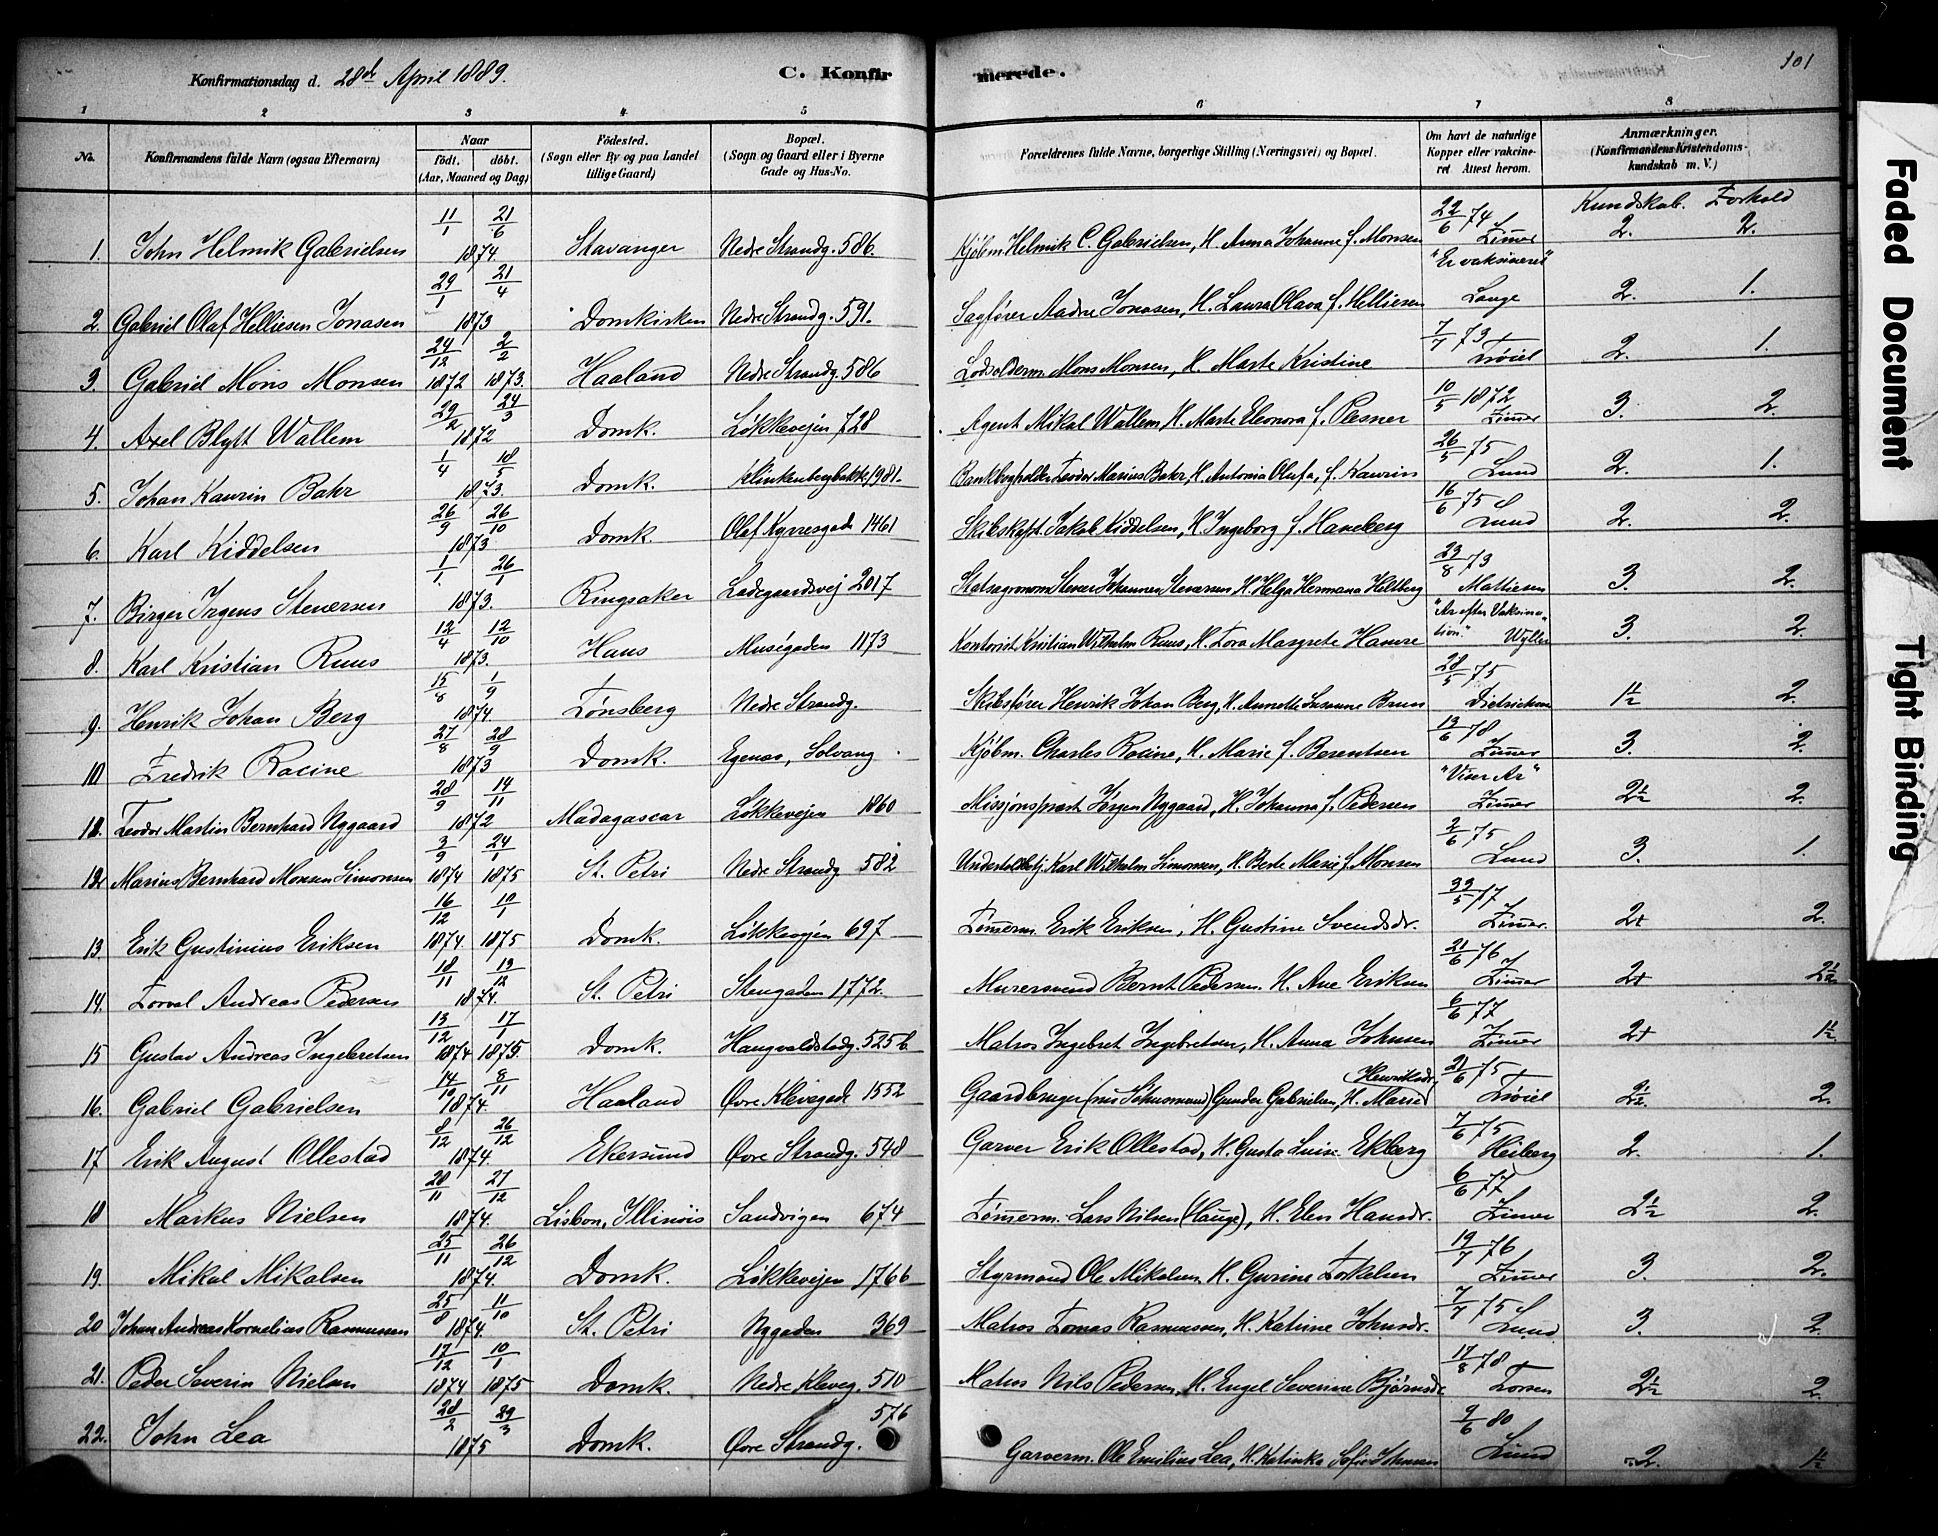 Konfirmationsdag d. 28de April 1889.
C. Konfirmerede.
101
1 2 3 4 5 6 7 8
No.
Konfirmandens fulde Navn (ogsaa Efternavn)
Naar
födt. döbt.
(Aar, Maaned og Dag)
Födested.
(Sogn eller By og paa Landet tillige Gaard)
Bopæl.
(Sogn og Gaard eller i Byerne Gade og Hus-No.
Forældrenes fulde Navne, borgerlige Stilling (Næringsvei) og Bopæl.
Om havt de naturlige Kopper eller vakcineret Attest herom.
Anmærkninger.
(Konfirmandens Kristendomskundskab m. V.)
Kundskab. Forhold
1. John Helmik Gabrielsen 11/1 21/6 1874 Stavanger Nedre Strandg. 586. Kjøbm. Helmik C. Gabrielsen, H. Anna Johanne f. Monsen 22/6 74 Zimer 2. 2.
2. Gabriel Olaf Helliesen Jonasen 29/1 21/4 1873 Domkirken Nedre Strandg. 591. Sagfører Aadne Jonasen, H. Laura Olava f. Helliesen "Er vaksineret" Lange 2. 1.
3. Gabriel Mons Monsen 24/12 1872 2/2 1873. Haaland Nedre Strandg. 586 Lodsolderm. Mons Monsen, H. Marte Kristine 7/7 73 Trøiel 2. 1.
4. Axel Blytt Wallem 29/2 24/3 1872 Domk. Løkkevejen 728 Agent Mikal Wallem, H. Marte Eleonora f. Plesner 10/5 1872 Zimer 3. 2.
5. Johan Kaurin Bahr 1/4 18/5 1873. Domk. Klinkenbergbakk. 1981. Bankbogholder Teodor Marius Bahr, H. Antonia Olufa, f. Kaurin 26/5 75 Lund 2. 1.
6. Karl Kiddelsen 26/9 26/10 1873 Domk. Olaf Kyrresgade 1461 Skibskapt. Jakob Kiddelsen, H. Ingeborg f. Haneberg 16/6 75 Lund 2. 2.
7. Birger Irgens Stenersen 1/1. 26/1 1873. Ringsaker Ladegaardsvej 2017 Statsagronom Stener Johannes Stenersen H. Helga Hermana Heltberg 23/8 73 Mathiesen 3. 2.
8. Karl Kristian Ruus 12/4 12/10 1873. Haus Muségaden 1173 Kontorist Kristian Wilhelm Ruus, H. Tora Margrete Hamre "Ar efter Vaksination." Wyller 3. 2.
9. Henrik Johan Berg 15/8 1/9 1874. Tønsberg Nedre Strandg. Skibsfører Henrik Johan Berg, H. Annette Susanne Bruun 28/5 75 Dietrichson 1½ 2.
10 Fredrik Racine 27/8 28/9 1873 Domk. Egenæs, Solvang Kjøbm. Charles Racine, H. Marie f. Berentsen 13/6 78 Zimer 3. 2.
11. Teodor Martin Bernhard Nygaard 28/9 14/11 1872 Madagascar Løkkevejen 1860 Missjonspræst Jørgen Nygaard, H. Johanna f. Pedersen "Viser Ar" Zimer 2½ 2.
12. Marius Bernhard Monsen Simonsen 3/9 1874 24/1 1875 St. Petri Nedre Strandg 582 Undertoldbetj. Karl Wilhelm Simonsen, H. Berte Marie f. Monsen 2/6 75 Lund 3. 1.
13. Erik Gustinius Eriksen 16/12 1874. 10/1 1875 Domk. Løkkevejen 697 Tømerm. Erik Eriksen, H. Gustine Svendsdr. 23/5 77 Zimer. 2+ 2.
14. Torval Andreas Pedersen 18/11 13/12 1874. St. Petri Stengaden 1772. Murersvend Bernt Pedersen. H. Ane Eriksen 21/6 76 Zimer 2+ 2½
15 Gustav Andreas Ingebretsen 13/12 1874 17/1 1875. Domk. Haugvaldstadg. 525b Matros Ingebret Ingebretsen, H. Anna Johnsen 6/6 77 Zimer 2+ 1½
16. Gabriel Gabrielsen 14/10 8/11 1874. Haaland Øvre Klevegade 1552 Gaardbruger (nu Søhusmand) Gunder Gabrielsen, H. Marie Henriksdr. 21/6 75 Trøiel 2½. 2.
17 Erik August Ollestad 8/12 26/12 1874. Ekersund Øvre Strandg. 548 Garver Erik Ollestad, H. Gusta Luise Ekberg 7/6 75 Heiberg 2. 1.
18 Markus Nielsen 20/11 27/12 1874. Lisbon, Illinois Sandvigen 674 Tømerm. Lars Nilsen (Hauge), H. Elen Hansdr. 6/6 77 Zimer 2½ 2.
19. Mikal Mikalsen 25/11 26/12 1874. Domk. Løkkevejen 1766 Styrmand Ole Mikalsen H. Gurine Torkelsen 19/7 76 Zimer 3. 2.
20 Johan Andreas Kornelius Rasmussen 25/8 11/10 1874. St. Petri Nygaden 369 Matros Tomas Rasmussen, H. Katrine Johnsdr. 7/7 75 Lund 3. 2.
21. Peder Severin Nielsen 17/12 1874 10/1 1875 Domk. Nedre Kleveg. 510 Matros Nils Pedersen, H. Engel Severine Bjørnsdr 17/8 78 Torsen 2½ 2.
22. John Lea 28/2 29/3 1875 Domk. Øvre Strandg. 576 Garverm. Ole Emilius Lea, H. Katinka Sofie Johnsen 9/6 80 Lund 2. 1½
Faded Document
Tight Binding